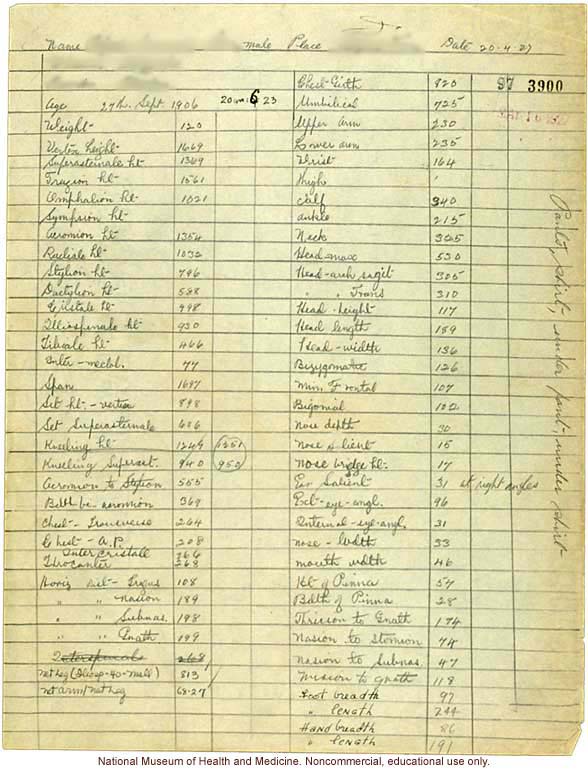 Name male Place Date 20-4-27
Chest-Girth 820 S7 3900
Age 27th. Sept 1906 20 6 23 Umbilical 725
Weight 120 Upper arm 230
Vertex height 1669 Lower arm 235
Suprasternale ht 1369 Wrist 164
Tragion ht 1561 Thigh
Omphalion ht 1021 Calf 340
Sympsion ht ankle 215
Acromion ht 1354 Neck 325
Radiale ht 1032 Head max 530
Stylion ht 796 Head-arch sagit 305
Dactylion ht 588 " " Trans 310
998 Head-height 117
Illiospinale ht 930 Head length 189
Tibiale ht 466 Head-width 136
77 Bizygomatic 126
Span 1697 Min Frontal 107
Sit ht. - vertex 898 Bigonial 102
Sit Suprasternale 606 Nose depth 30
Kneeling ht 1249 1251 Nose salient 15
Kneeling Suprast. 940 950 Nose bridge ht. 17
Acromion to Stylion 555 Ear Salient 31 at right angles
Bdth be. acromion 369 Ect-eye-angl. 96
Chest - Transverse 264 Internal-eye-angl. 31
Chest - A.P. 208 nose - bdth 33
Inter cristale 266 mouth width 46
Throcanter 268
Horiz dist - Tragus 108 Ht of Pinna 57
" " nasion 189 Bdth of Pinna 28
" " Subnas. 198 Thricion to Gnath 174
" " Gnath 199 Nasion to Stomion 74
Interspinale 268 Nasion to Subnas. 47
net leg (Iliosp-40-mall) 813 Nasion to gnath 118
net arm/net leg 68-27 Foot breadth 97
" Length 244
Hand breadth 86
" Length 191
Pants, shirt, under pant-under shirt-
National Museum of Health and Medicine. Noncommercial, educational use only.